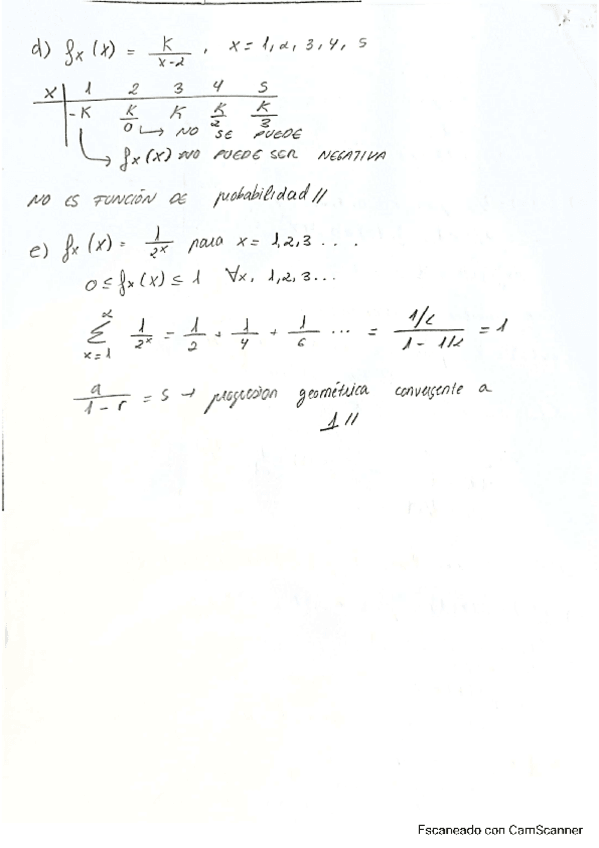 d) fx (x) = K/x-2 , x = 1, 2, 3, 4, 5
x 1 2 3 4 5
-K K/0 K K/2 K/3
↳ NO SE PUEDE
↳ fx (x) NO PUEDE SER NEGATIVA
NO ES FUNCIÓN DE probabilidad //
e) fx (x) = 1/2^x para x = 1,2,3 ...
0 ≤ fx (x) ≤ 1 ∀x, 1,2,3...
∑ x=1 ∝ 1/2^x = 1/2 + 1/4 + 1/6 ... = 1/2 / 1 - 1/2 = 1
a / 1 - r = S → progresion geométrica convergente a
1 //
Escaneado con CamScanner